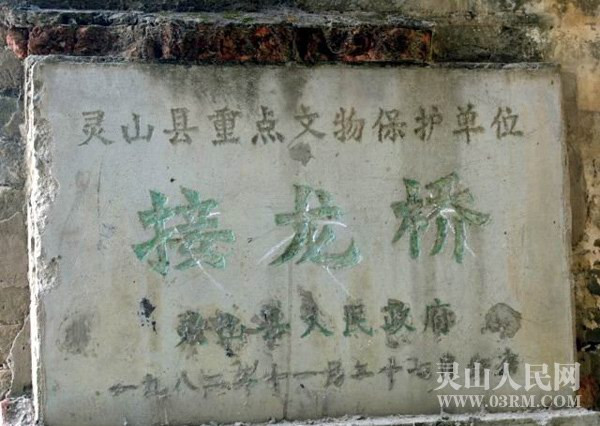 灵山县重点文物保护单位
接龙桥
灵山县人民政府
一九八二年十一月二十七日
灵山人民网
WWW.03RM.COM